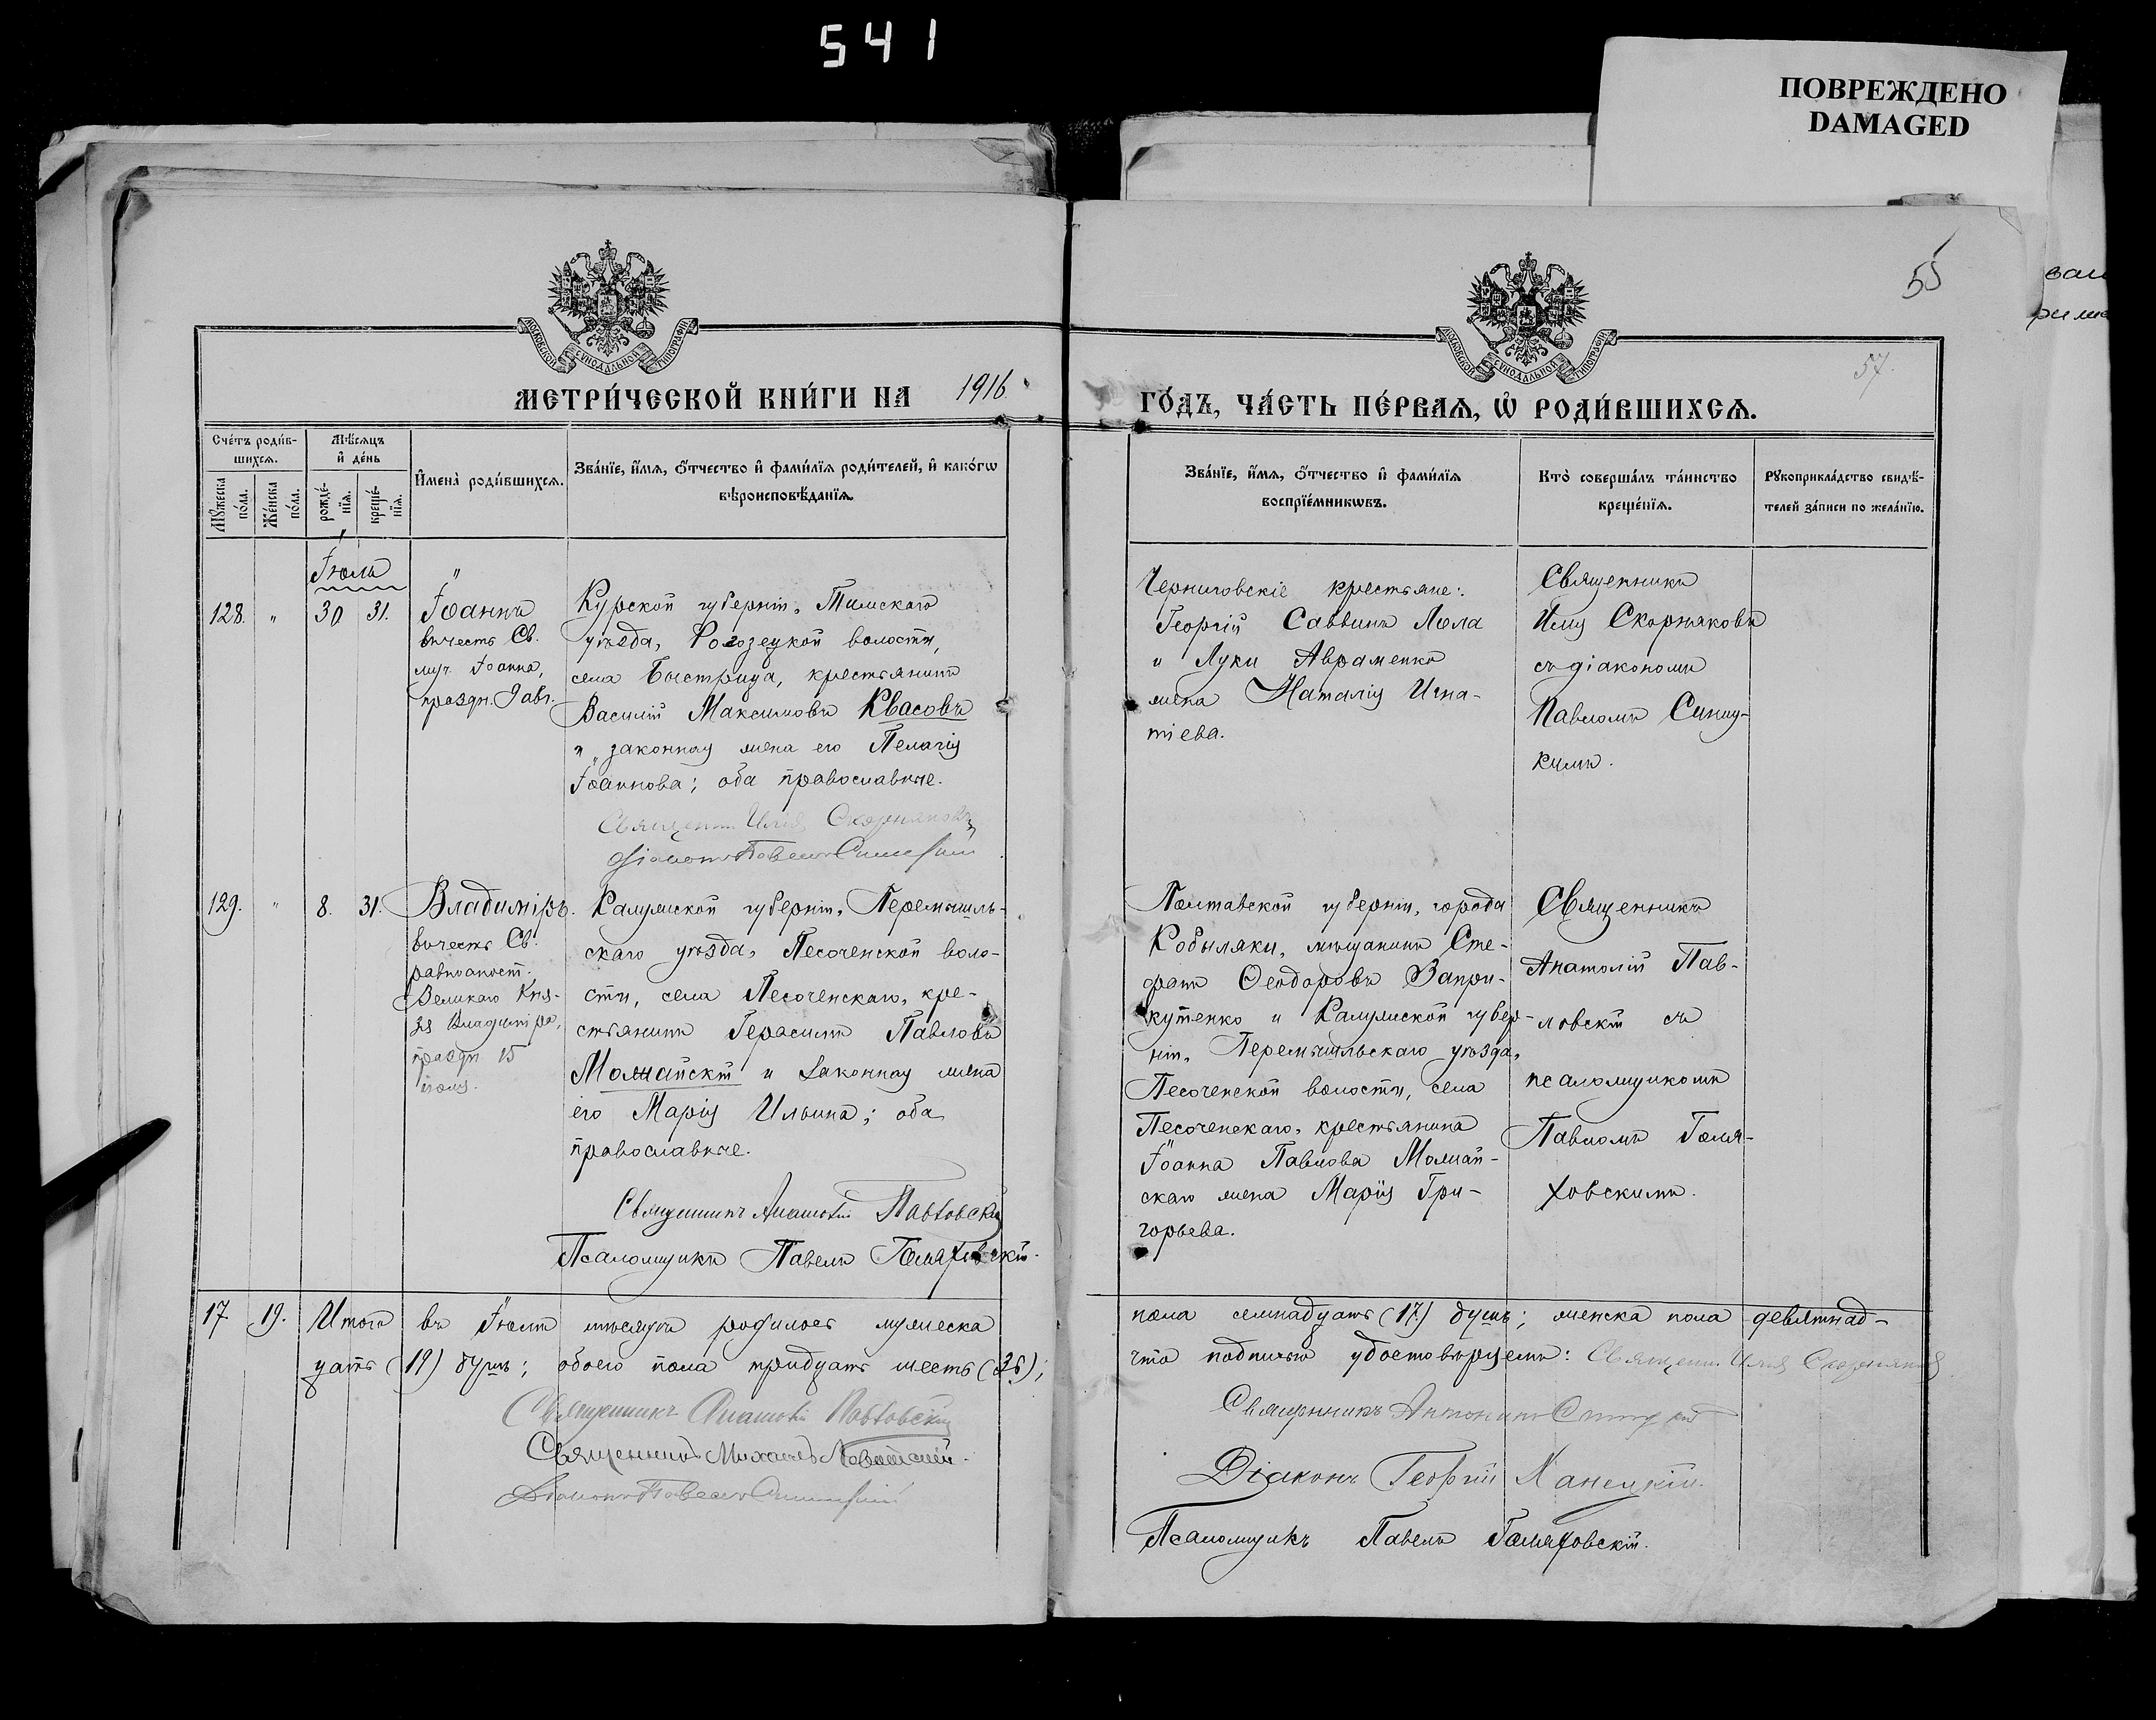 541
ПОВРЕЖДЕНО
DAMAGED
55
57.
МОСКОВСКОЙ СѴНОДАЛЬНОЙ ТИПОГРАФІИ
МОСКОВСКОЙ СѴНОДАЛЬНОЙ ТИПОГРАФІИ
МЕТРИ́ЧЕСКОЙ КНИ́ГИ НА 1916
ГО́ДЪ, ЧА́СТЬ ПЕ́РВАЯ, Ѡ РОДИ́ВШИХСЯ.
Сче́тъ роди́в-
шихся.
Мѣ́сяцъ
и де́нь
Мꙋ́жеска
по́ла.
Же́нска
по́ла.
рожде́-
нїя.
креще́-
нїя.
Имена̀ роди́вшихся.
Зва́нїе, и́мя, ѻ́тчество и фами́лїя роди́телей, и како́гѡ
вѣроисповѣ́данїя.
Зва́нїе, и́мя, ѻ́тчество и фами́лїя
воспрїе́мникѡвъ.
Кто̀ соверша́лъ та́инство
креще́нїя.
Рꙋкоприкла́дство свидѣ́-
телей за́писи по жела́нїю.
Іюль
128. " 30 31. Іоаннъ
въ честь Св.
муч. Іоанна,
праздн.
Курской губерніи, Тимскаго
уѣзда, Рогозецкой волости,
села Быстрица, крестьянинъ
Василій Максимовъ Квасовъ
и законная жена его Пелагія
Іоаннова; оба православные.
Священн. Илія Скорняковъ
Діаконъ Павелъ
Черниговскіе крестьяне:
Георгій Саввинъ Лола
и Луки Авраменко
жена Наталія Игна-
тіева.
Священникъ
Илія Скорняковъ
съ діакономъ
Павломъ Синиц-
кимъ.
129. " 8. 31. Владиміръ.
въ честь Св.
равноапост.
Великаго Кня-
зя Владиміра,
праздн. 15
іюля.
Калужской губерніи, Перемышль-
скаго уѣзда, Песоченской воло-
сти, села Песоченскаго, кре-
стьянинъ Герасимъ Павловъ
Можайскій и законная жена
его Марія Ильина; оба
православные.
Священникъ Анатолій Павловскій
Псаломщикъ Павелъ Голяховскій.
Полтавской губерніи, города
Кобыляки, мѣщанинъ Сте-
фанъ Ѳеодоровъ Запри-
кутенко и Калужской губер-
ніи, Перемышльскаго уѣзда,
Песоченской волости, села
Песоченскаго, крестьянина
Іоанна Павлова Можай-
скаго жена Марія Гри-
горьева.
Священникъ
Анатолій Пав-
ловскій съ
псаломщикомъ
Павломъ Голя-
ховскимъ.
17 19. Итого въ Іюлѣ мѣсяцѣ родилось мужеска
пола семнадцать (17) душъ; женска пола девятнад-
цать (19) душъ; обоего пола тридцать шесть (36);
что подписью удостовѣряемъ: Священн. Илія Скорняковъ
Священникъ Анатолій Павловскій
Священникъ Михаилъ
Діаконъ Павелъ
Священникъ Антонинъ
Діаконъ Георгій
Псаломщикъ Павелъ Голяховскій.